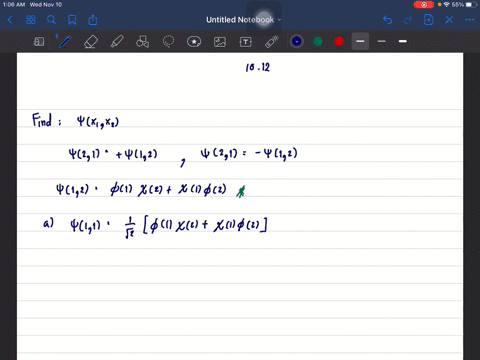 1:06 AM Wed Nov 10
55%
Untitled Notebook
10.12
Find : Ψ(x₁,x₂)
Ψ(2,1) = +Ψ(1,2) , Ψ(2,1) = -Ψ(1,2)
Ψ(1,2) = ϕ(1) χ(2) + χ(1) ϕ(2)
a) Ψ(1,1) = 1/√2 [ϕ(1) χ(2) + χ(1) ϕ(2)]